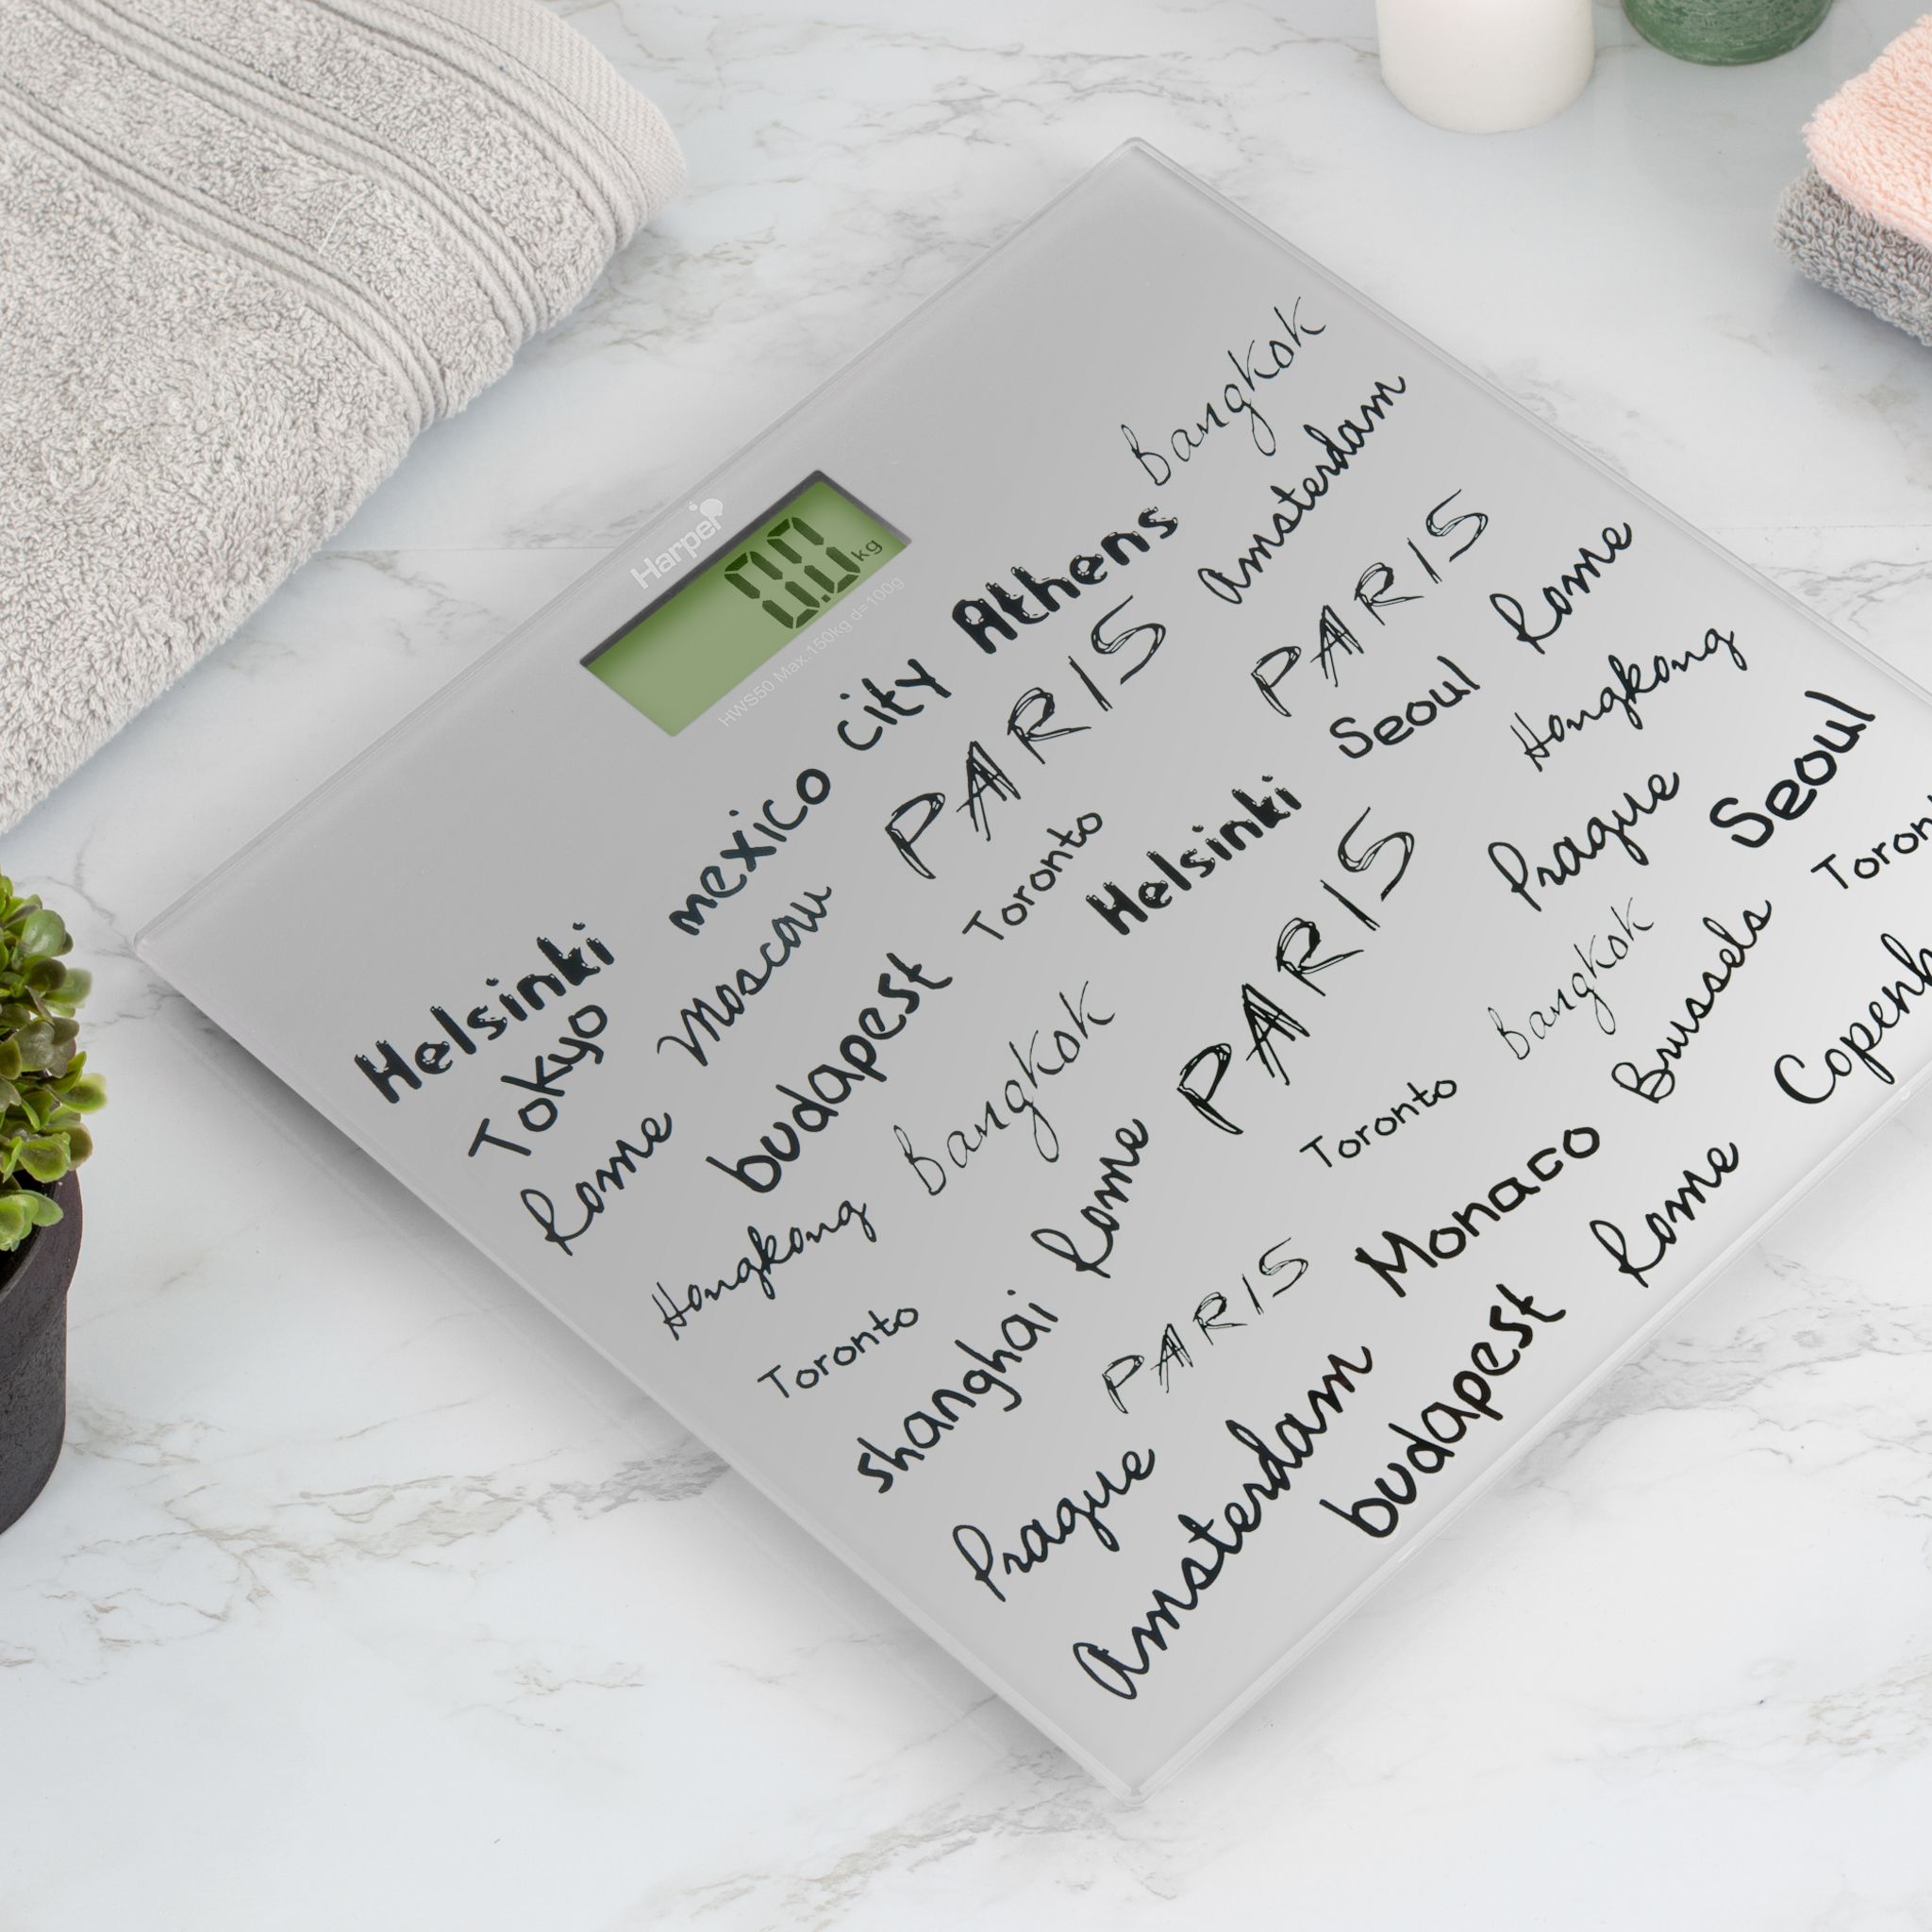 Harper
0.0 kg
HWS50 Max.150kg d=100g
Bangkok
Helsinki mexico city Athens Amsterdam
Tokyo Moscow PARIS PARIS Rome
Rome budapest Toronto Helsinki Seoul Hongkong
Hongkong Bangkok PARIS Prague Seoul
Toronto Rome Bangkok Toron
shanghai PARIS Toronto Brussels Copenh
Prague Monaco Rome
Amsterdam budapest